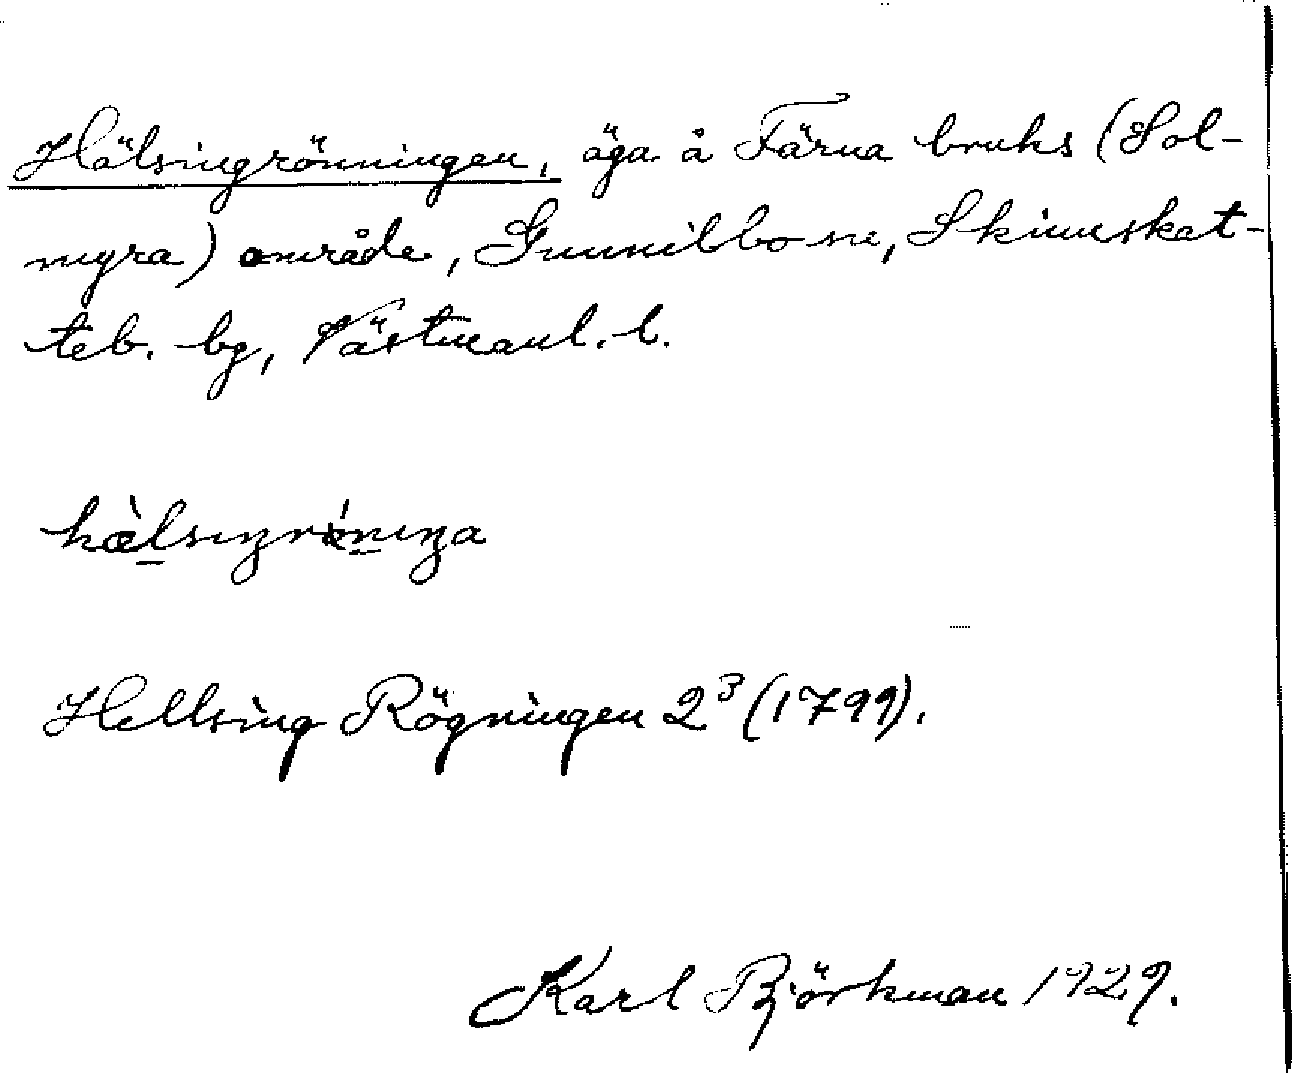 Hälsingrönningen, äga å Färna bruks (Sol-
myra) område, Gunnilbo sn, Skinnskat-
teb. bg, Västmanl. l.
hæ̀lsıŋrö́nıŋa
Hellsing Rögningen 2³ (1799).
Karl Björkman 1929.